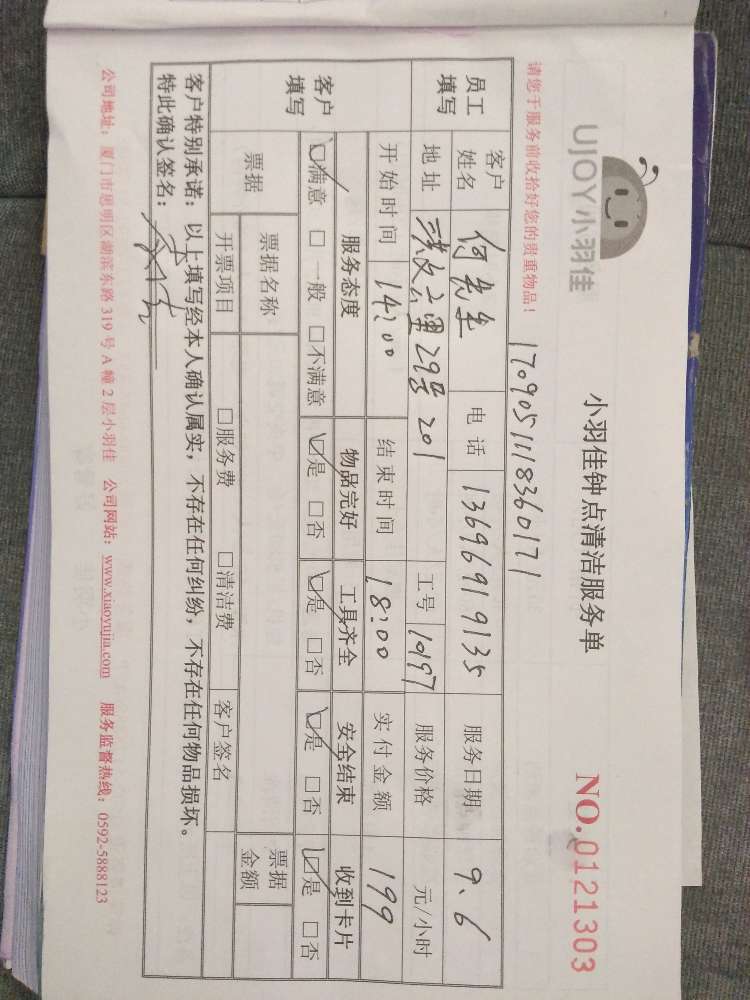 UJOY小羽佳
小羽佳钟点清洁服务单
NO.0121303
请您于服务前收拾好您的贵重物品！
1709051118360171
员工填写
客户姓名 何先生 电话 13696919135 服务日期 9.6
地址 洪文六里29号201 工号 10197 服务价格 元/小时
开始时间 14:00 结束时间 18:00 实付金额 199
客户填写
服务态度 物品完好 工具齐全 安全结束 收到卡片
☑满意 □一般 □不满意 ☑是 □否 ☑是 □否 ☑是 □否 ☑是 □否
票据 票据名称 票据金额
开票项目 □服务费 □清洁费 客户签名
客户特别承诺：以上填写经本人确认属实；不存在任何纠纷，不存在任何物品损坏。
特此确认签名：
公司地址：厦门市思明区湖滨东路319号A幢2层小羽佳 公司网站：www.xiaoyujia.com 服务监督热线：0592-5888123